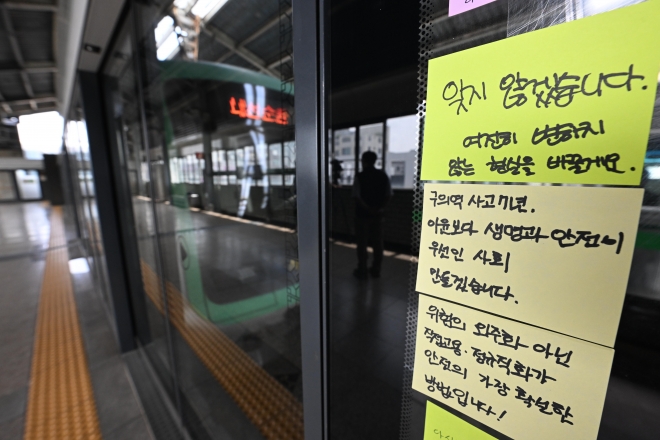 잊지 않겠습니다.
여전히 변하지
않는 현실을 바꿀게요.
구의역 사고 7년.
이윤보다 생명과 안전이
우선인 사회
만들겠습니다.
위험의 외주화 아닌
직접고용·정규직화가
안전의 가장 확실한
방법입니다!